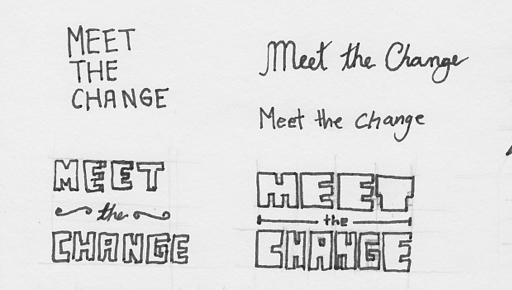 MEET
THE
CHANGE
Meet the Change
Meet the change
MEET
the
CHANGE
MEET
the
CHANGE